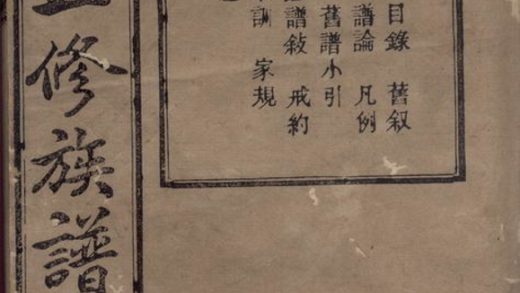 目錄 舊叙
譜論 凡例
舊譜小引
譜敍 戒約
訓 家規
修族譜